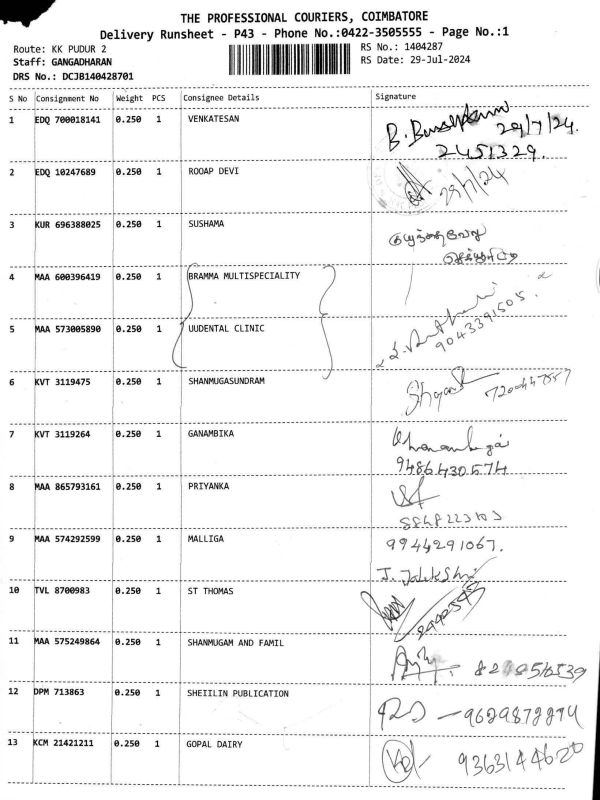 THE PROFESSIONAL COURIERS, COIMBATORE
Delivery Runsheet - P43 - Phone No.:0422-3505555 - Page No.:1
Route: KK PUDUR 2 RS No.: 1404287
Staff: GANGADHARAN RS Date: 29-Jul-2024
DRS No.: DCJB140428701
S No Consignment No Weight PCS Consignee Details Signature
1 EDQ 700018141 0.250 1 VENKATESAN 29/7/24.
2451329.
2 EDQ 10247689 0.250 1 ROOAP DEVI 29/7/24
3 KUR 696388025 0.250 1 SUSHAMA
4 MAA 600396419 0.250 1 BRAMMA MULTISPECIALITY
5 MAA 573005890 0.250 1 UUDENTAL CLINIC 9043391505.
6 KVT 3119475 0.250 1 SHANMUGASUNDRAM
7 KVT 3119264 0.250 1 GANAMBIKA
9486430574
8 MAA 865793161 0.250 1 PRIYANKA
9 MAA 574292599 0.250 1 MALLIGA 9944291067.
10 TVL 8700983 0.250 1 ST THOMAS
11 MAA 575249864 0.250 1 SHANMUGAM AND FAMIL
12 DPM 713863 0.250 1 SHEIILIN PUBLICATION
13 KCM 21421211 0.250 1 GOPAL DAIRY 9363144620